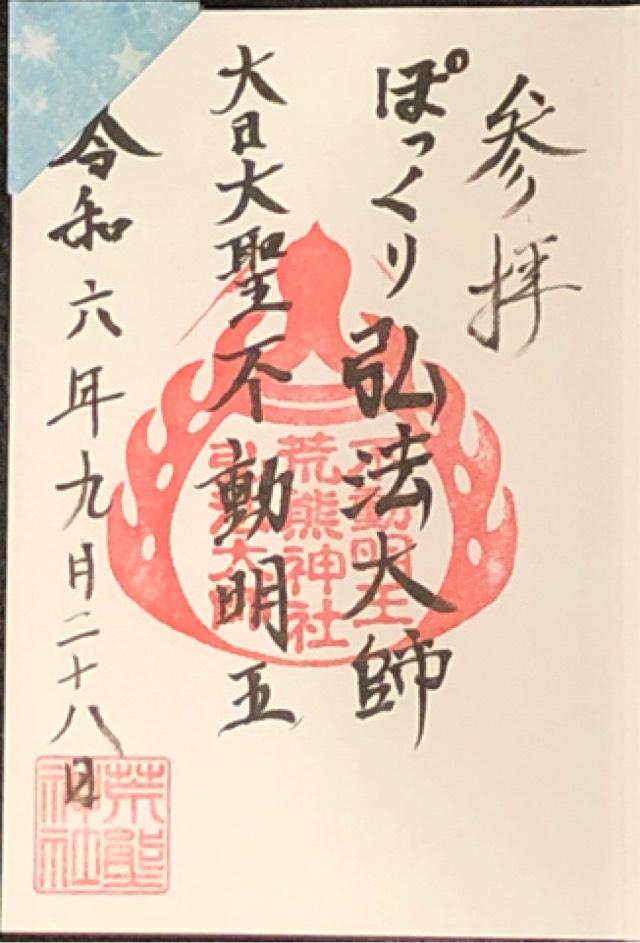 参拝
ぽっくり弘法大師
大日大聖不動明王
令和六年九月二十八日
不動明王
荒熊神社
弘法大師
荒熊
神社